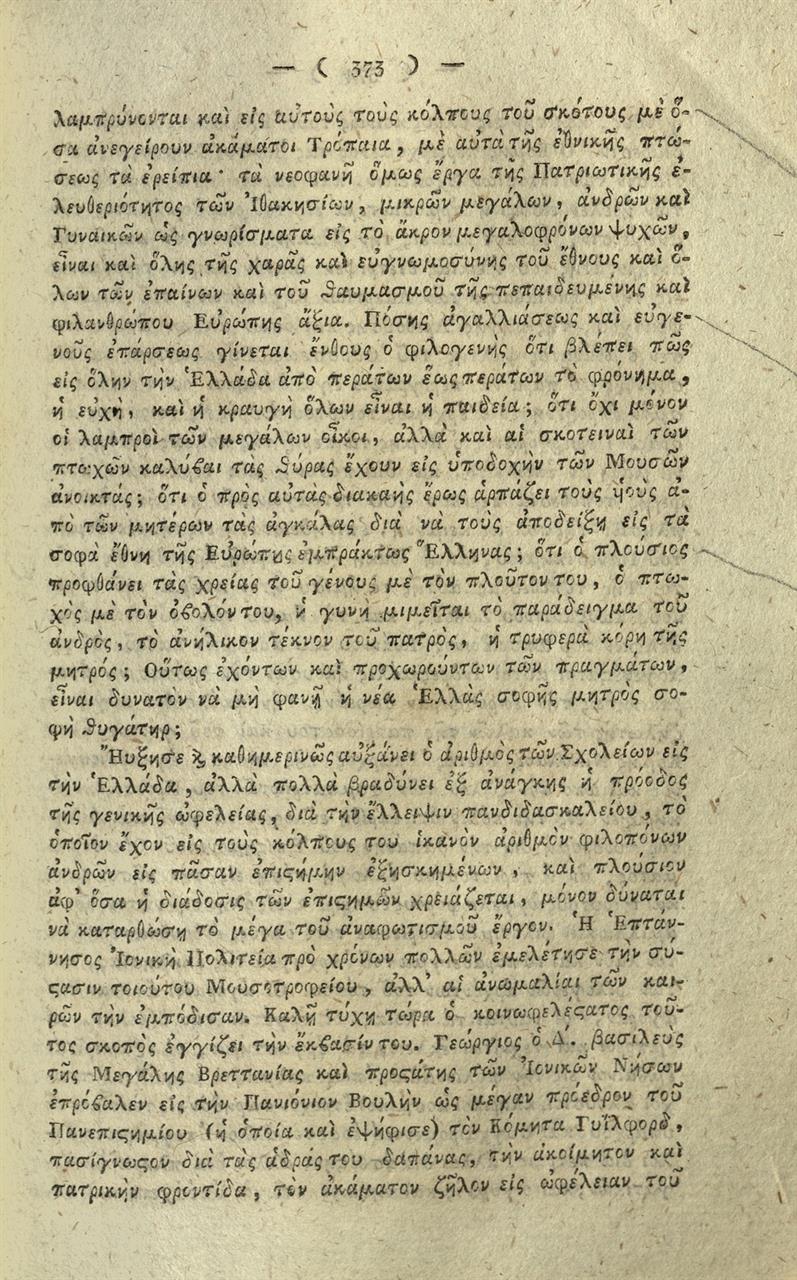 — ( 373 ) —
λαμπρύνονται καὶ εἰς αὐτοὺς τοὺς κόλπους τοῦ σκότους, μὲ ὅ-
σα ἀνεγείρουν ἀκάματοι Τρόπαια, μὲ αὐτὰ τῆς ἐθνικῆς πτώ-
σεως τὰ ἐρείπια· τὰ νεοφανῆ ὅμως ἔργα τῆς Πατριωτικῆς ἐ-
λευθεριότητος τῶν Ἰθακησίων, μικρῶν μεγάλων, ἀνδρῶν καὶ
Γυναικῶν ὡς γνωρίσματα εἰς τὸ ἄκρον μεγαλοφρόνων ψυχῶν,
εἶναι καὶ ὅλης τῆς χαρᾶς καὶ εὐγνωμοσύνης τοῦ ἔθνους καὶ ὅ-
λων τῶν ἐπαίνων καὶ τοῦ θαυμασμοῦ τῆς πεπαιδευμένης καὶ
φιλανθρώπου Εὐρώπης ἄξια. Πόσης ἀγαλλιάσεως καὶ εὐγε-
νοῦς ἐπάρσεως γίνεται ἔνθους ὁ φιλογενὴς ὅτι βλέπει πῶς
εἰς ὅλην τὴν Ἑλλάδα ἀπὸ περάτων ἕως περάτων τὸ φρόνημα,
ἡ εὐχὴ, καὶ ἡ κραυγὴ ὅλων εἶναι ἡ παιδεία; ὅτι ὄχι μόνον
οἱ λαμπροὶ τῶν μεγάλων οἶκοι, ἀλλὰ καὶ αἱ σκοτειναὶ τῶν
πτωχῶν καλύβαι τὰς θύρας ἔχουν εἰς ὑποδοχὴν τῶν Μουσῶν
ἀνοικτάς; ὅτι ὁ πρὸς αὐτὰς διακαὴς ἔρως ἁρπάζει τοὺς ὑιοὺς ἀ-
πὸ τῶν μητέρων τὰς ἀγκάλας διὰ νὰ τοὺς ἀποδείξῃ εἰς τὰ
σοφὰ ἔθνη τῆς Εὐρώπης ἐμπράκτως Ἕλληνας; ὅτι ὁ πλούσιος
προφθάνει τὰς χρείας τοῦ γένους μὲ τὸν πλοῦτον του, ὁ πτω-
χὸς μὲ τὸν ὀβολόν του, ἡ γυνὴ μιμεῖται τὸ παράδειγμα τοῦ
ἀνδρὸς, τὸ ἀνήλικον τέκνον τοῦ πατρὸς, ἡ τρυφερὰ κόρη τῆς
μητρός; Οὕτως ἐχόντων καὶ προχωρούντων τῶν πραγμάτων,
εἶναι δυνατὸν νὰ μὴ φανῇ ἡ νέα Ἑλλὰς σοφῆς μητρὸς σο-
φὴ θυγάτηρ;
Ἤυξησε ϗ καθημερινῶς αὐξάνει ὁ ἀριθμὸς τῶν Σχολείων εἰς
τὴν Ἑλλάδα, ἀλλὰ πολλὰ βραδύνει ἐξ ἀνάγκης ἡ πρόοδος
τῆς γενικῆς ὠφελείας, διὰ τὴν ἔλλειψιν πανδιδασκαλείου, τὸ
ὁποῖον ἔχον εἰς τοὺς κόλπους του ἱκανὸν ἀριθμὸν φιλοπόνων
ἀνδρῶν εἰς πᾶσαν ἐπιϛήμην ἐξησκημένων, καὶ πλούσιον
ἀφ' ὅσα ἡ διάδοσις τῶν ἐπιϛημῶν χρειάζεται, μόνον δύναται
νὰ καταρθώσῃ τὸ μέγα τοῦ ἀναφωτισμοῦ ἔργον. Ἡ Ἑπτάν-
νησος Ἰονικὴ Πολιτεία πρὸ χρόνων πολλῶν ἐμελέτησε τὴν σύ-
ϛασιν τοιούτου Μουσοτροφείου, ἀλλ' αἱ ἀνωμαλίαι τῶν και-
ρῶν τὴν ἐμπόδισαν. Καλῇ τύχῃ τώρα ὁ κοινωφελέϛατος τοῦ-
τος σκοπὸς ἐγγίζει τὴν ἔκβασίν του. Γεώργιος ὁ Δ'. βασιλεὺς
τῆς Μεγάλης Βρεττανίας καὶ προϛάτης τῶν Ἰονικῶν Νήσων
ἐπρόβαλεν εἰς τὴν Πανιόνιον Βουλὴν ὡς μέγαν πρόεδρον τοῦ
Πανεπιϛημίου (ἡ ὁποία καὶ ἐψήφισε) τὸν Κόμητα Γυΐλφορδ,
πασίγνωϛον διὰ τὰς ἁδράς του δαπάνας, τὴν ἀκοίμητον καὶ
πατρικὴν φροντίδα, τὸν ἀκάματον ζῆλον εἰς ὠφέλειαν τοῦ